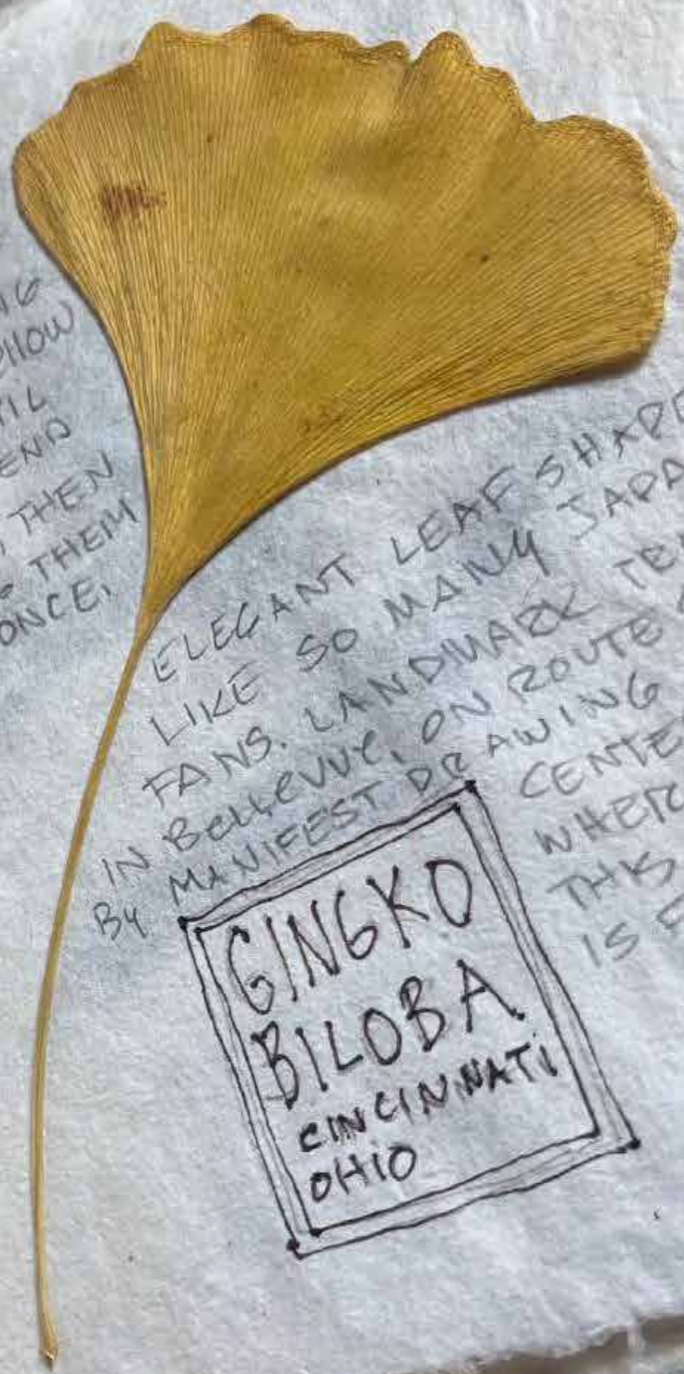 YELLOW
TIL
END
THEN
THEM
ONCE,
ELEGANT LEAF SHAPE
LIKE SO MANY JAPA
FANS. LANDMARK
IN BELLEVUE, ON ROUTE
BY MANIFEST DRAWING
CENTE
WHER
THIS
IS F
GINGKO
BILOBA
CINCINNATI
OHIO